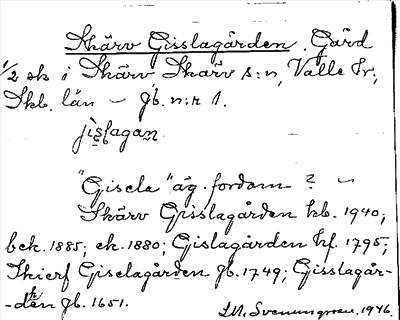 Skärv Gisslagården. Gård
1/2 sk i Skärv, Skärv s:n, Valle hr;
Skb. län – Jb. n:r 1.
jisfagan
"Gisela" äg. fordom? –
Skärv Gisslagården kb. 1940;
bck. 1885; ek. 1880; Gislagården hf. 1795;
Skierf Giselagården Jb. 1749; Gisslagår-
-den Jb. 1651.
1946.